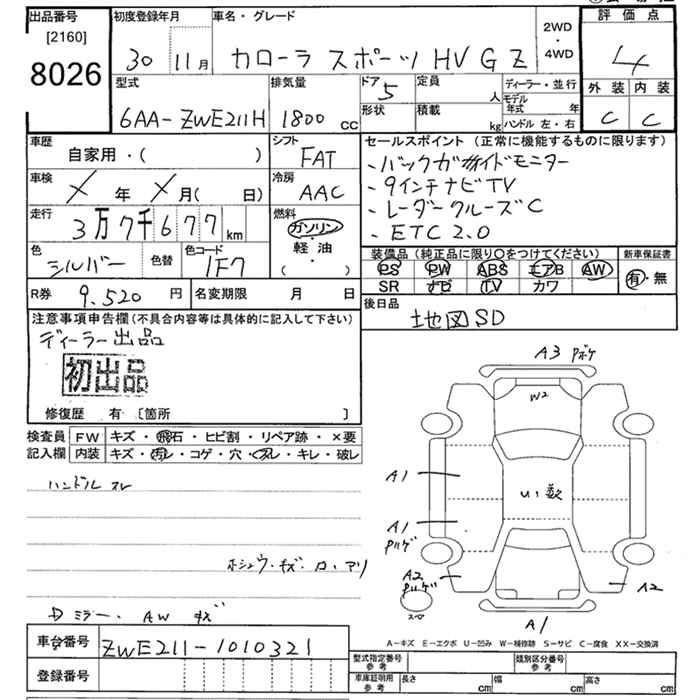 出品番号
[2160]
8026
初度登録年月
30 11月
車名・グレード
カローラ スポーツ HV G Z
2WD
・
4WD
評価点
4
外装 内装
C C
型式
6AA-ZWE211H
排気量
1800 cc
ドア 5
形状
定員 人
積載 kg
ディーラー・並行
モデル年式 年
ハンドル 左・右
車歴
自家用・( )
シフト
FAT
車検
メ 年 メ 月( 日)
冷房
AAC
走行
3万7千677km
燃料
ガソリン
・
軽・油
( )
色
シルバー
色替
色コード
1F7
R券 9,520 円
名変期限 月 日
セールスポイント(正常に機能するものに限ります)
・9インチナビTV
・レーダークルーズC
・ETC2.0
装備品(純正品に限り○をつけてください)
PS PW ABS エアB AW
SR ナビ TV カワ
新車保証書
有・無
後日品
地図SD
注意事項申告欄(不具合内容等は具体的に記入して下さい)
ディーラー出品
初出品
修復歴 有 〔箇所 〕
検査員記入欄
FW キズ・飛石・ヒビ割・リペア跡・×要
内装 キズ・汚レ・コゲ・穴・スレ・キレ・破レ
ハンドル スレ
ホシュウ・キズ・ロ・アリ
Dミラー・AW キズ
A3 Pボケ
W2
A1
U1数
A1
A2
A2
A1
A-キズ E-エクボ U-凹み W-補修跡 S-サビ C-腐食 XX-交換済
車台番号 ZWE211-1010321
登録番号
型式指定番号 参考
類別区分番号 参考
車庫証明用 参考
長さ cm 幅 cm 高さ cm